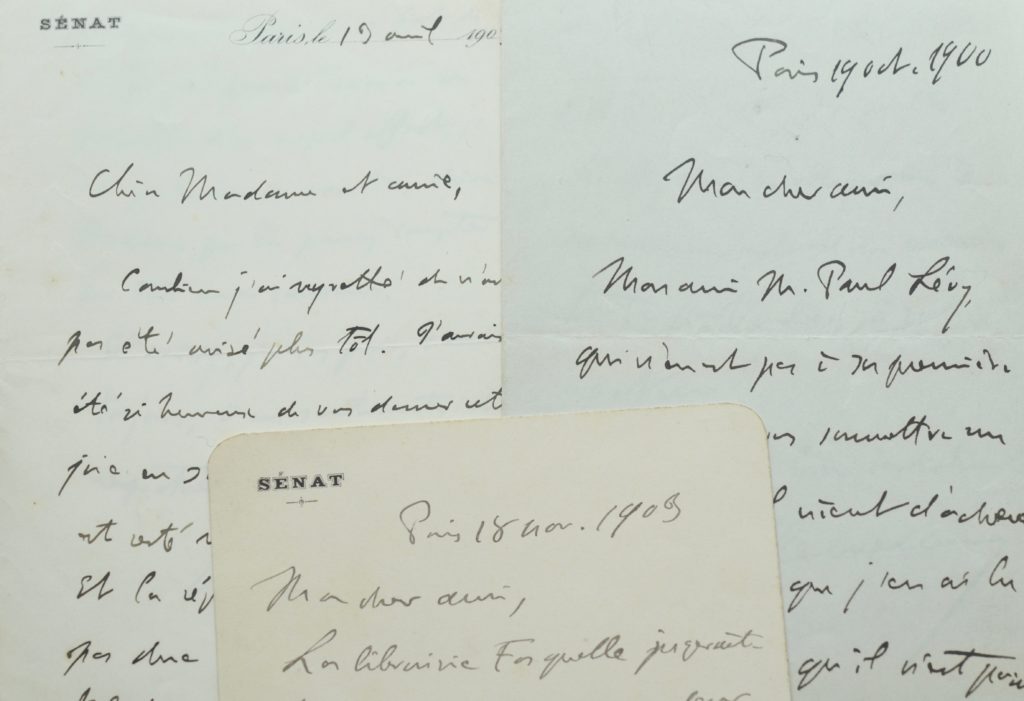 SÉNAT
Paris, le 13 avril 190
Chère Madame et amie,
Combien j'ai regretté de n'av
pas été avisé plus tôt. J'aurais
été si heureux de vous donner cet
joie en
est resté
Et la rép
pas due
Paris 19 oct. 1900
Mon cher ami,
Mon ami M. Paul Lévy,
qui n'en est pas à sa première
soumettre un
vient d'achever
que j'en ai lu
qu'il vient
SÉNAT
Paris 18 nov. 1903
Mon cher ami,
La librairie Fasquelle jugerait